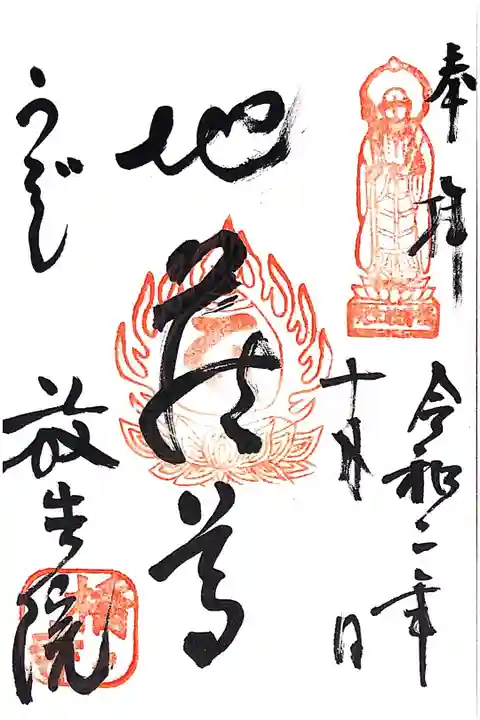 奉拝
令和二年
十月 日
地蔵尊
うぢばし
放生院